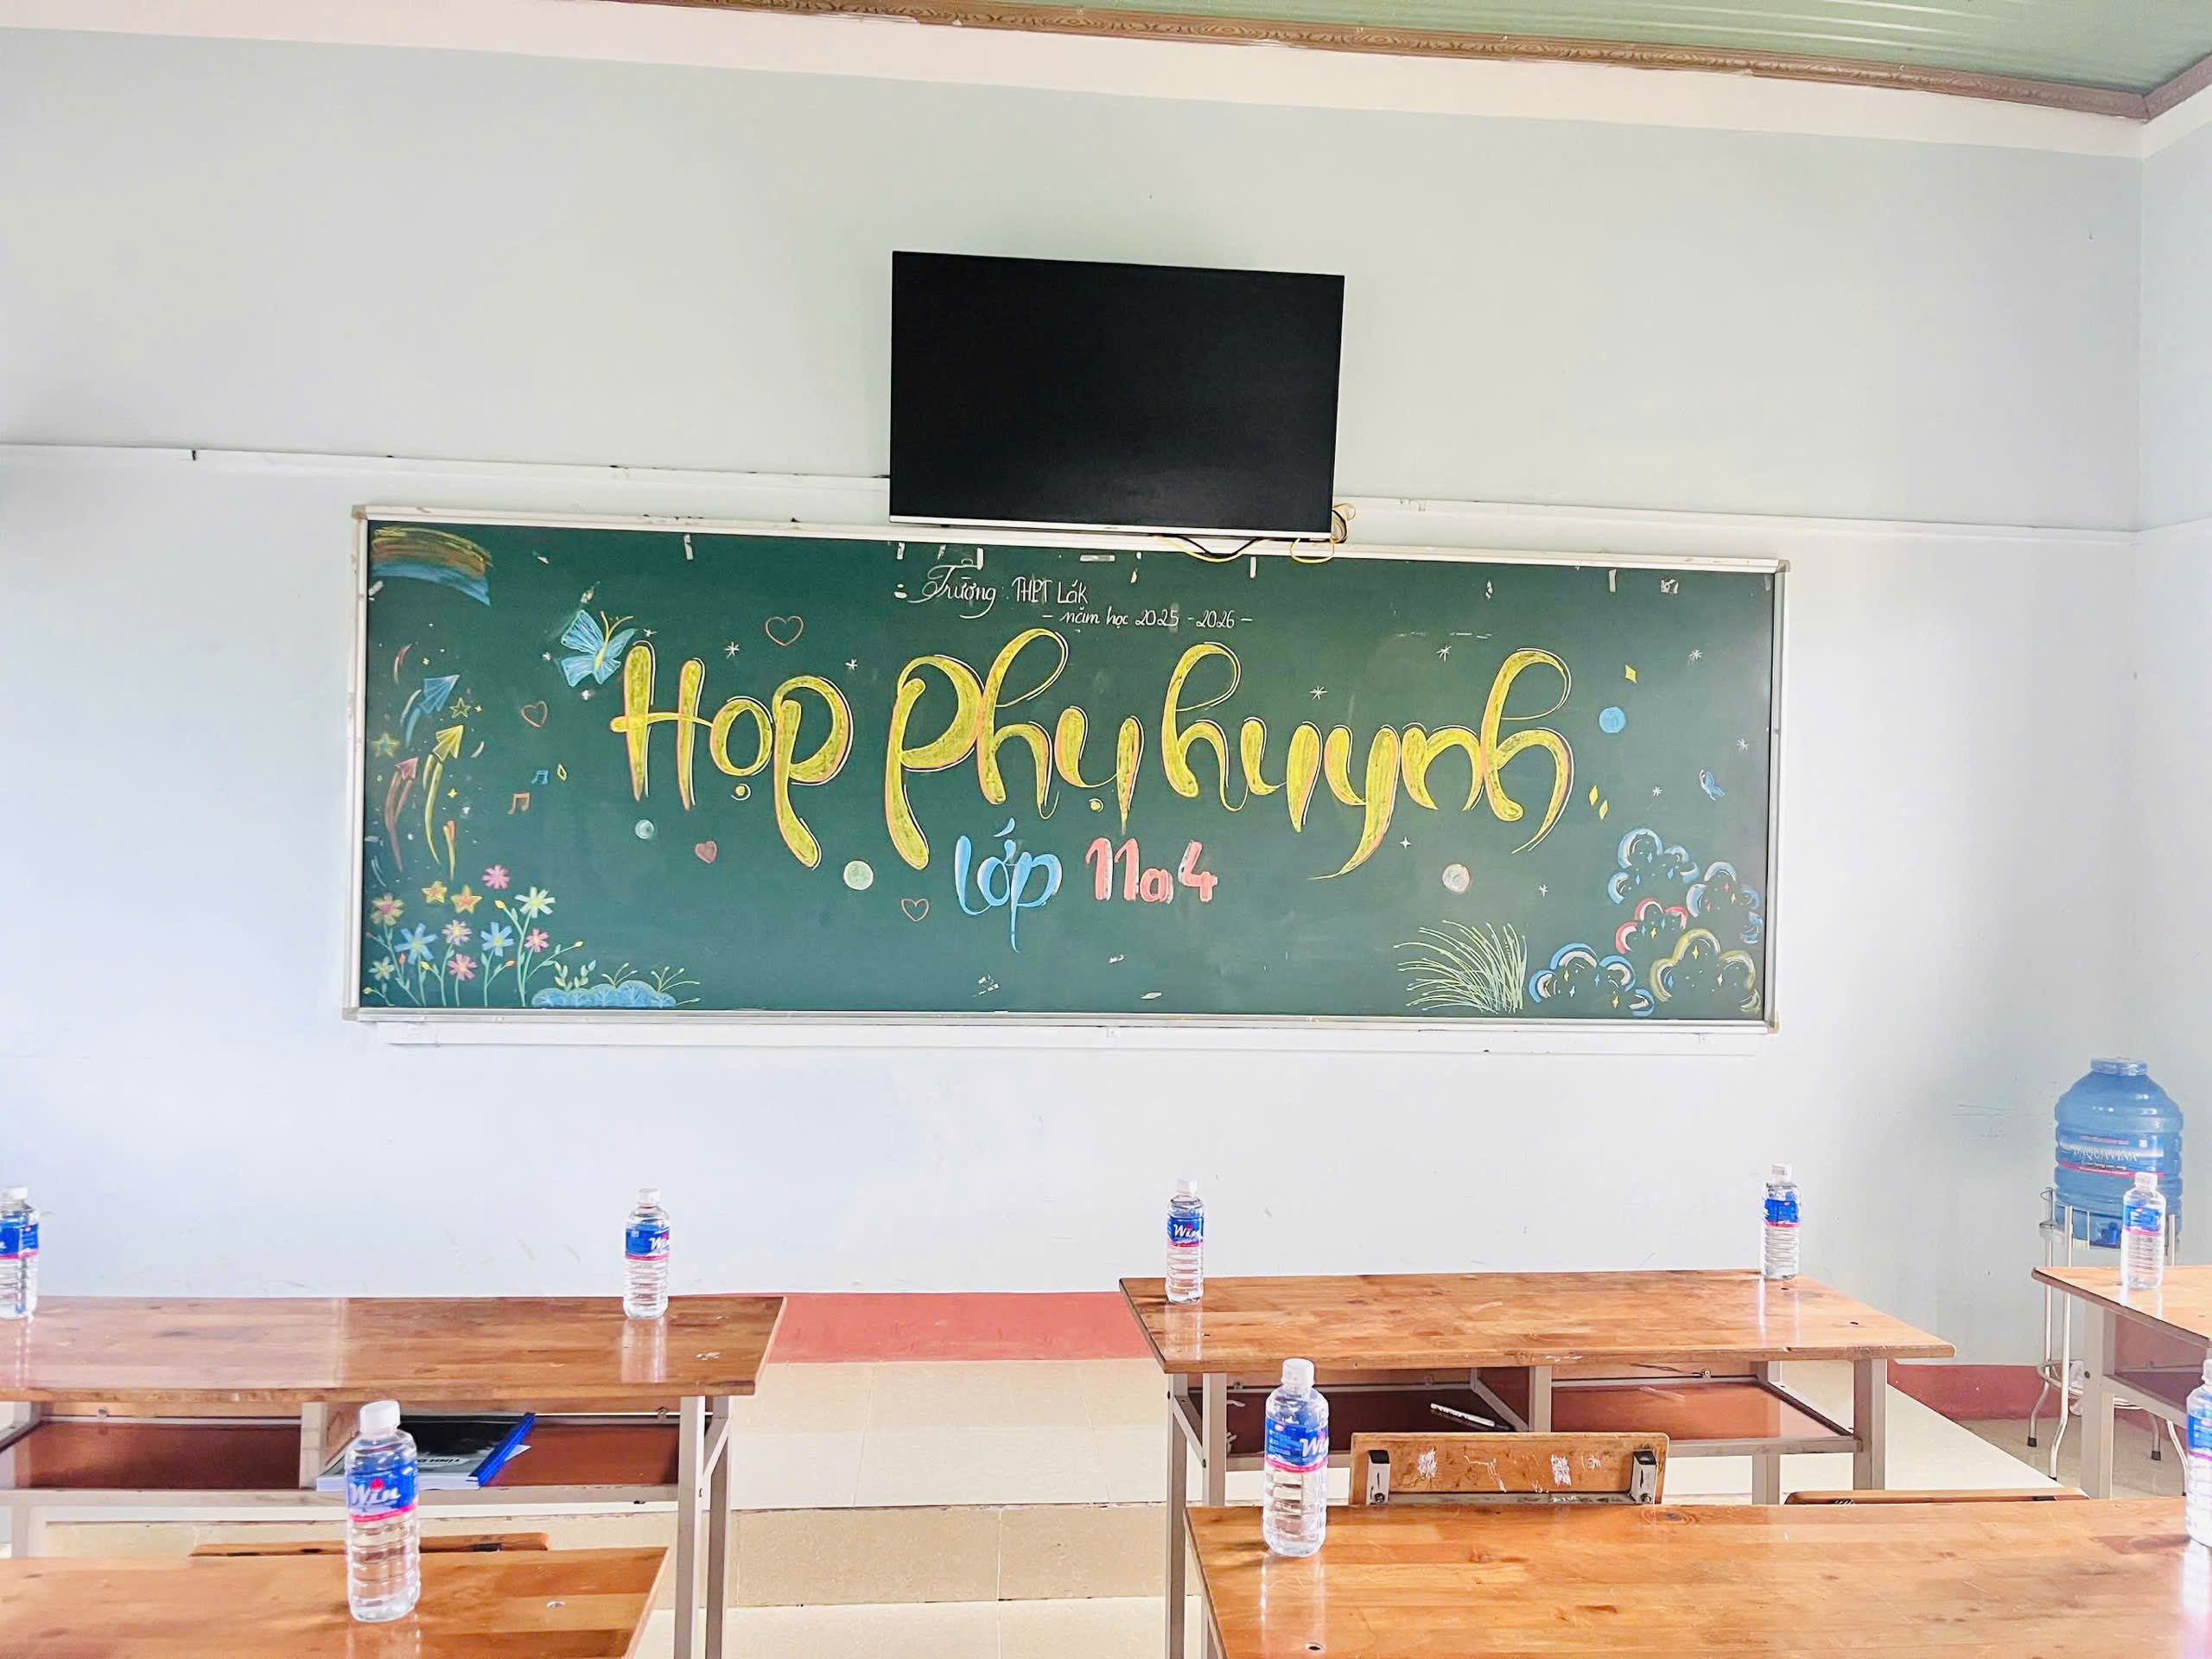 Trường THPT Lắk
- năm học 2025 - 2026 -
Họp phụ huynh
Lớp 11a4
Win
Win
Win
Win
Win